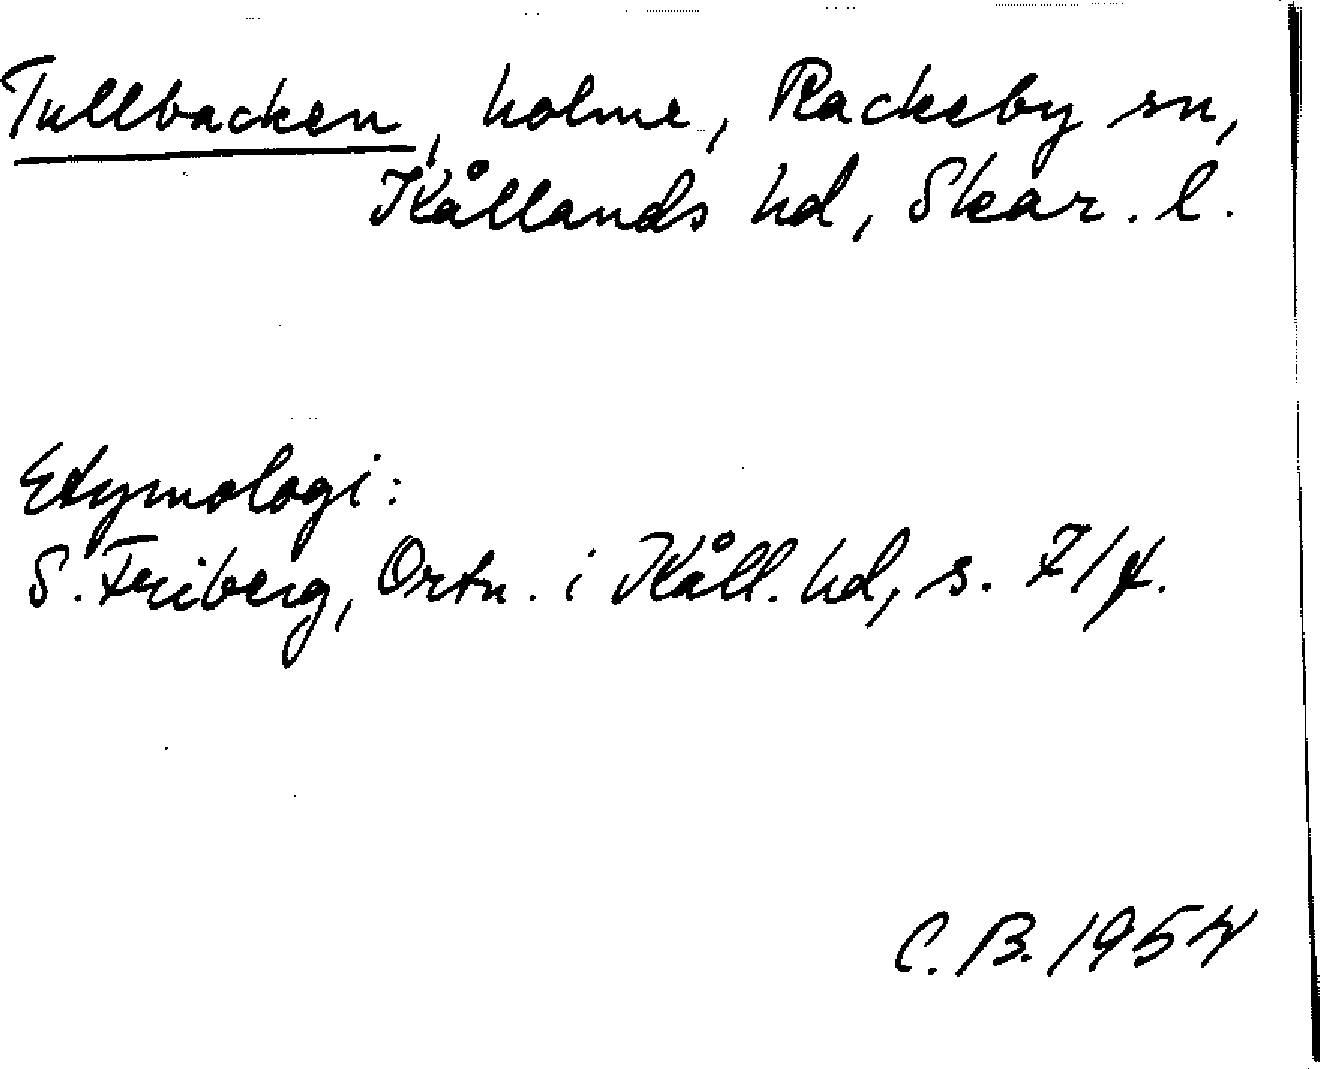 Tullbacken, holme, Rackeby sn,
Kållands hd, Skar. l.
Etymologi:
S. Friberg, Ortn. i Kåll. hd, s. 714.
C. B. 1954